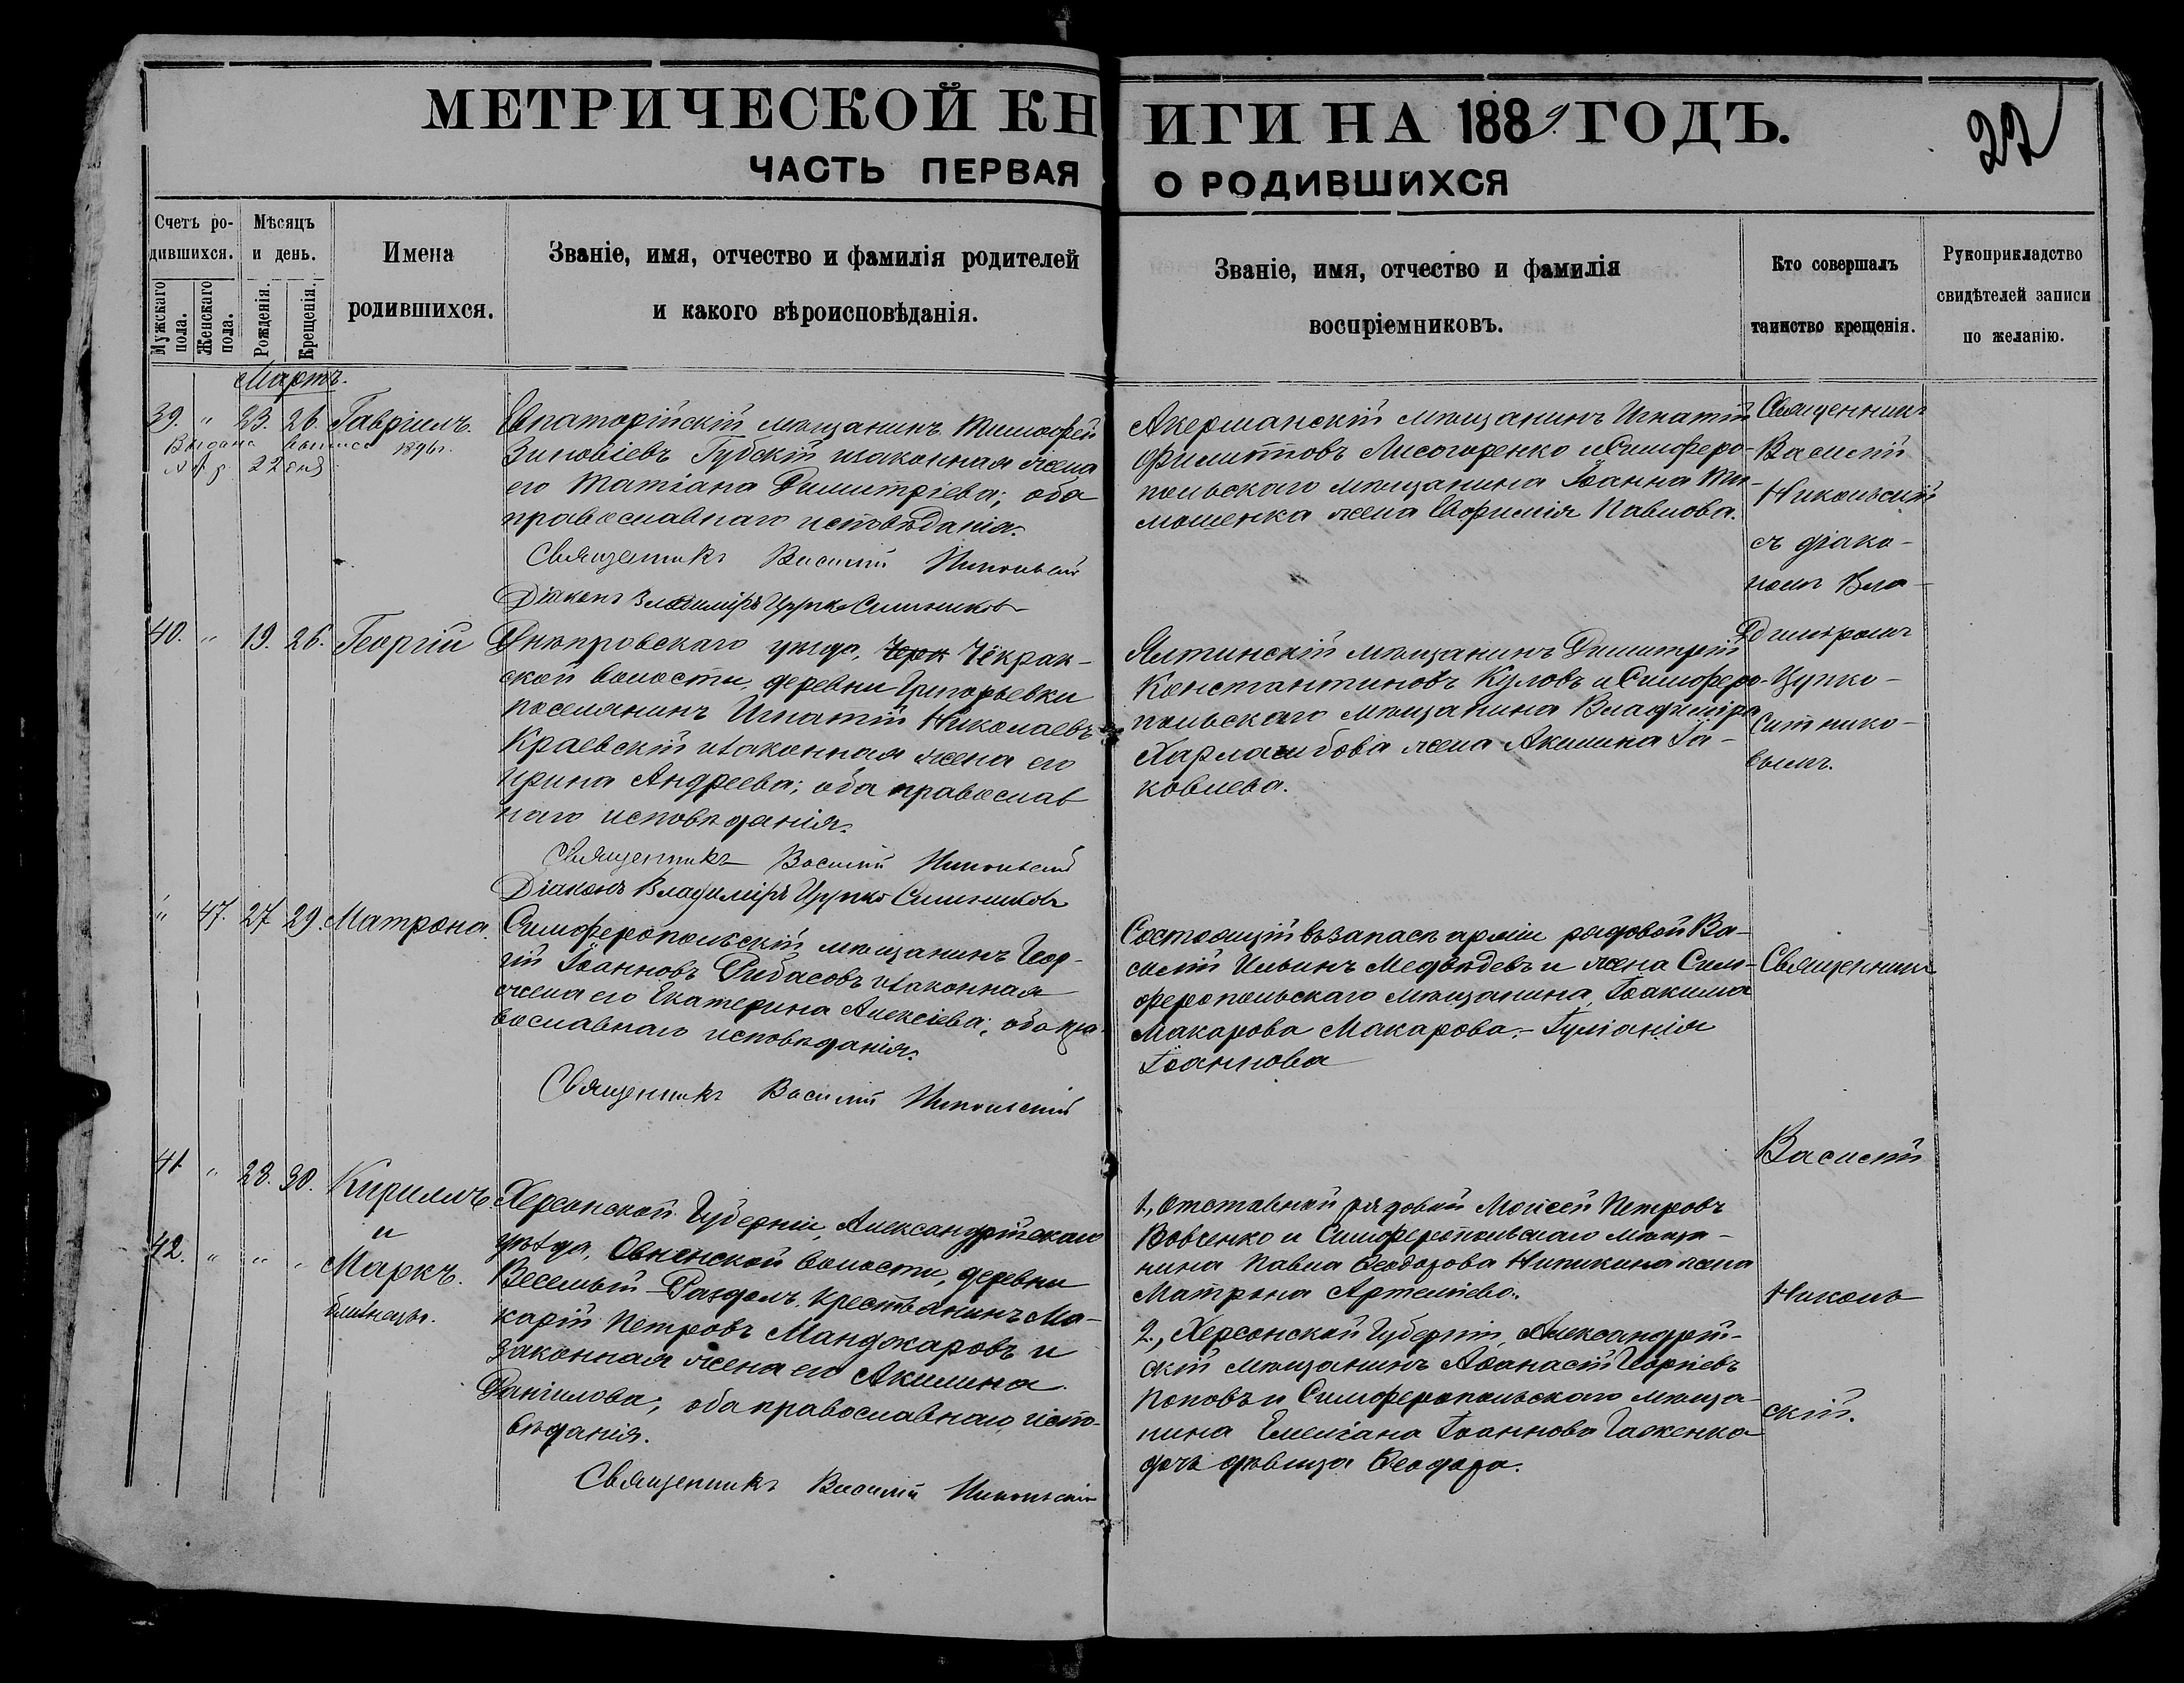 МЕТРИЧЕСКОЙ КНИГИ НА 1889. ГОДЪ.
22
ЧАСТЬ ПЕРВАЯ О РОДИВШИХСЯ
Счетъ ро-
дившихся.
Мужскаго пола.
Женскаго пола.
Мѣсяцъ
и день.
Рожденія.
Крещенія.
Имена
родившихся.
Званіе, имя, отчество и фамилія родителей
и какого вѣроисповѣданія.
Званіе, имя, отчество и фамилія
воспріемниковъ.
Кто совершалъ
таинство крещенія.
Рукоприкладство
свидѣтелей записи
по желанію.
Мартъ.
39. " 23. 26. Гавріилъ.
Выдана выписъ 1896г.
22 дня
Евпаторійскій мѣщанинъ Тимофей
Зиновіевъ Губскій и законная жена
его Татіана Димитріева; оба
православнаго исповѣданія.
Священникъ Василій Никольскій
Діаконъ Владиміръ Цупко-Ситниковъ
Акерманскій мѣщанинъ Игнатій
Филипповъ Лисогоренко и Симферо-
польскаго мѣщанина Іоанна Ти-
мошенка жена Евфимія Павлова.
Священникъ
Василій
Никольскій
съ діако-
номъ Вла-
диміромъ
Цупко-
Ситнико-
вымъ.
40. " 19. 26. Георгій
Днѣпровскаго уѣзда, Черк Чекрак-
ской волости, деревни Григорьевки
поселянинъ Игнатій Николаевъ
Краевскій и законная жена его
Ирина Андреева; оба православ
наго исповѣданія.
Священникъ Василій Никольскій
Діаконъ Владиміръ Цупко-Ситниковъ
Ялтинскій мѣщанинъ Димитрій
Константиновъ Куловъ и Симферо-
польскаго мѣщанина Владиміра
Харламбова жена Акилина Іа-
ковлева.
" 47. 27 29. Матрона.
Симферопольскій мѣщанинъ Геор-
гій Іоанновъ Рибасовъ и законная
жена его Екатерина Алексіева; оба пра-
вославнаго исповѣданія.
Священникъ Василій Никольскій
Состоящій въ запасѣ арміи рядовой Ва-
силій Ильинъ Медвѣдевъ и жена Сим-
феропольскаго мѣщанина, Іоакима
Макарова Макарова,- Іуліанія
Іоаннова
Священникъ
Василій
Николь
скій.
41. " 23. 30. Кириллъ
и
42. " " " Маркъ.
близнецы.
Херсонской Губерніи, Александрійскаго
уѣзда, Овнянской волости, деревни
Веселый-Раздолъ, крестьянинъ Ма-
карій Петровъ Манджаровъ и
законная жена его Акилина
Даніилова; оба православнаго испо-
вѣданія.
Священникъ Василій Никольскій
1., Отставной рядовой Моисей Петровъ
Вовченко и Симферопольскаго мѣща-
нина Павла Ѳеодорова Никикина жена
Матрона Артеміева.
2., Херсонской Губерніи, Александрій-
скій мѣщанинъ Аѳанасій Георгіевъ
Поповъ и Симферопольскаго мѣща-
нина Емеліана Іоаннова Гаженка
дочь дѣвица Ѳеодора.